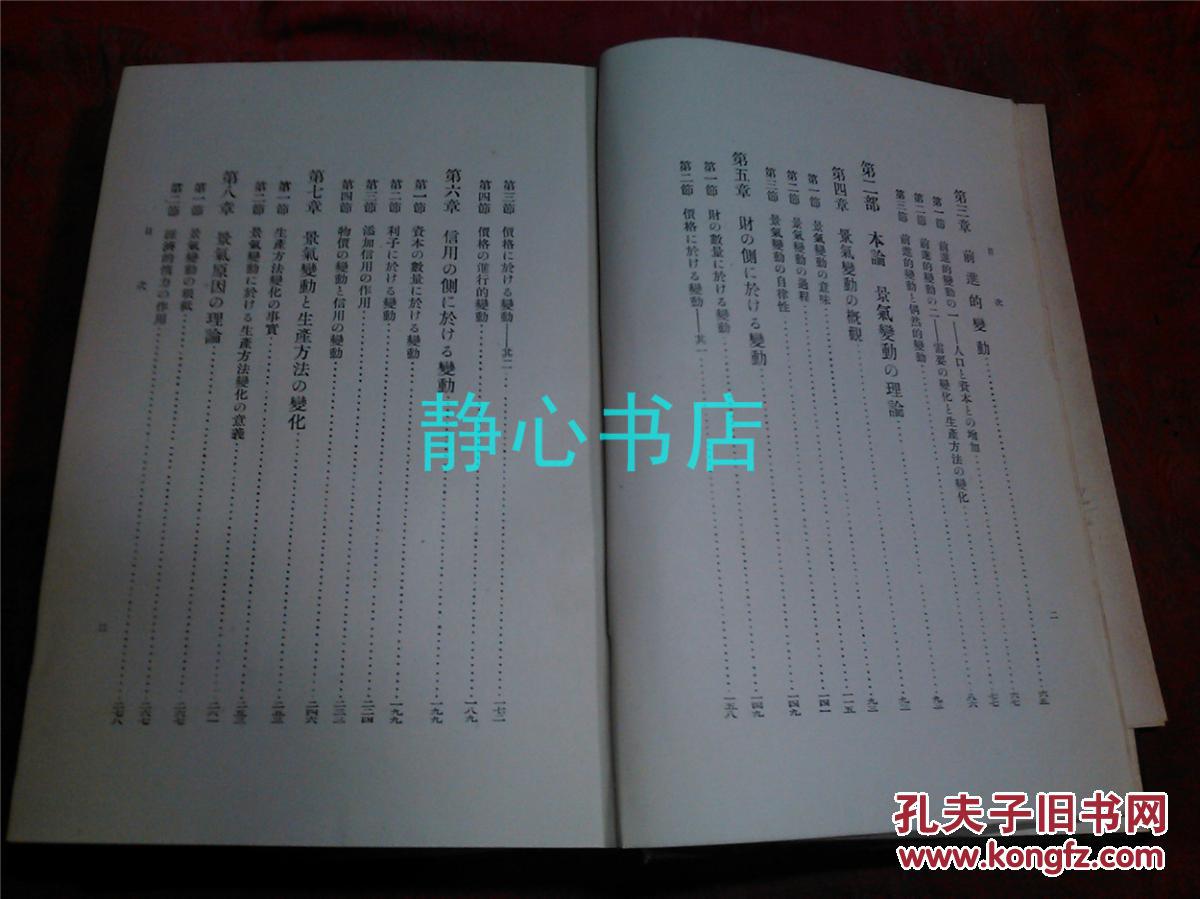 目次
第三章　前進的變動
第一節　前進的變動の一——人口と資本との增加
第二節　前進的變動の二——需要の變化と生產方法の變化
第三節　前進的變動と偶然的變動
第二部　本論　景氣變動の理論
第四章　景氣變動の概觀……一一五
第一節　景氣變動の意味……一四一
第二節　景氣變動の過程……一四九
第三節　景氣變動の自律性
第五章　財の側に於ける變動……一四九
第一節　財の數量に於ける變動
第二節　價格に於ける變動——其一……一五八
二
第三節　價格に於ける變動——其二……一七二
第四節　價格の進行的變動……一八九
第六章　信用の側に於ける變動……一九九
第一節　資本の數量に於ける變動
第二節　利子に於ける變動……一九九
第三節　添加信用の作用……二二四
第四節　物價の變動と信用の變動……二三三
第七章　景氣變動と生產方法の變化……二四六
第一節　生產方法變化の事實
第二節　景氣變動に於ける生產方法變化の意義
第八章　景氣原因の理論……二六一
第一節　景氣變動の
第二節　經濟的惰力の作用……二七八
目次
三
静心书店
孔夫子旧书网
www.kongfz.com